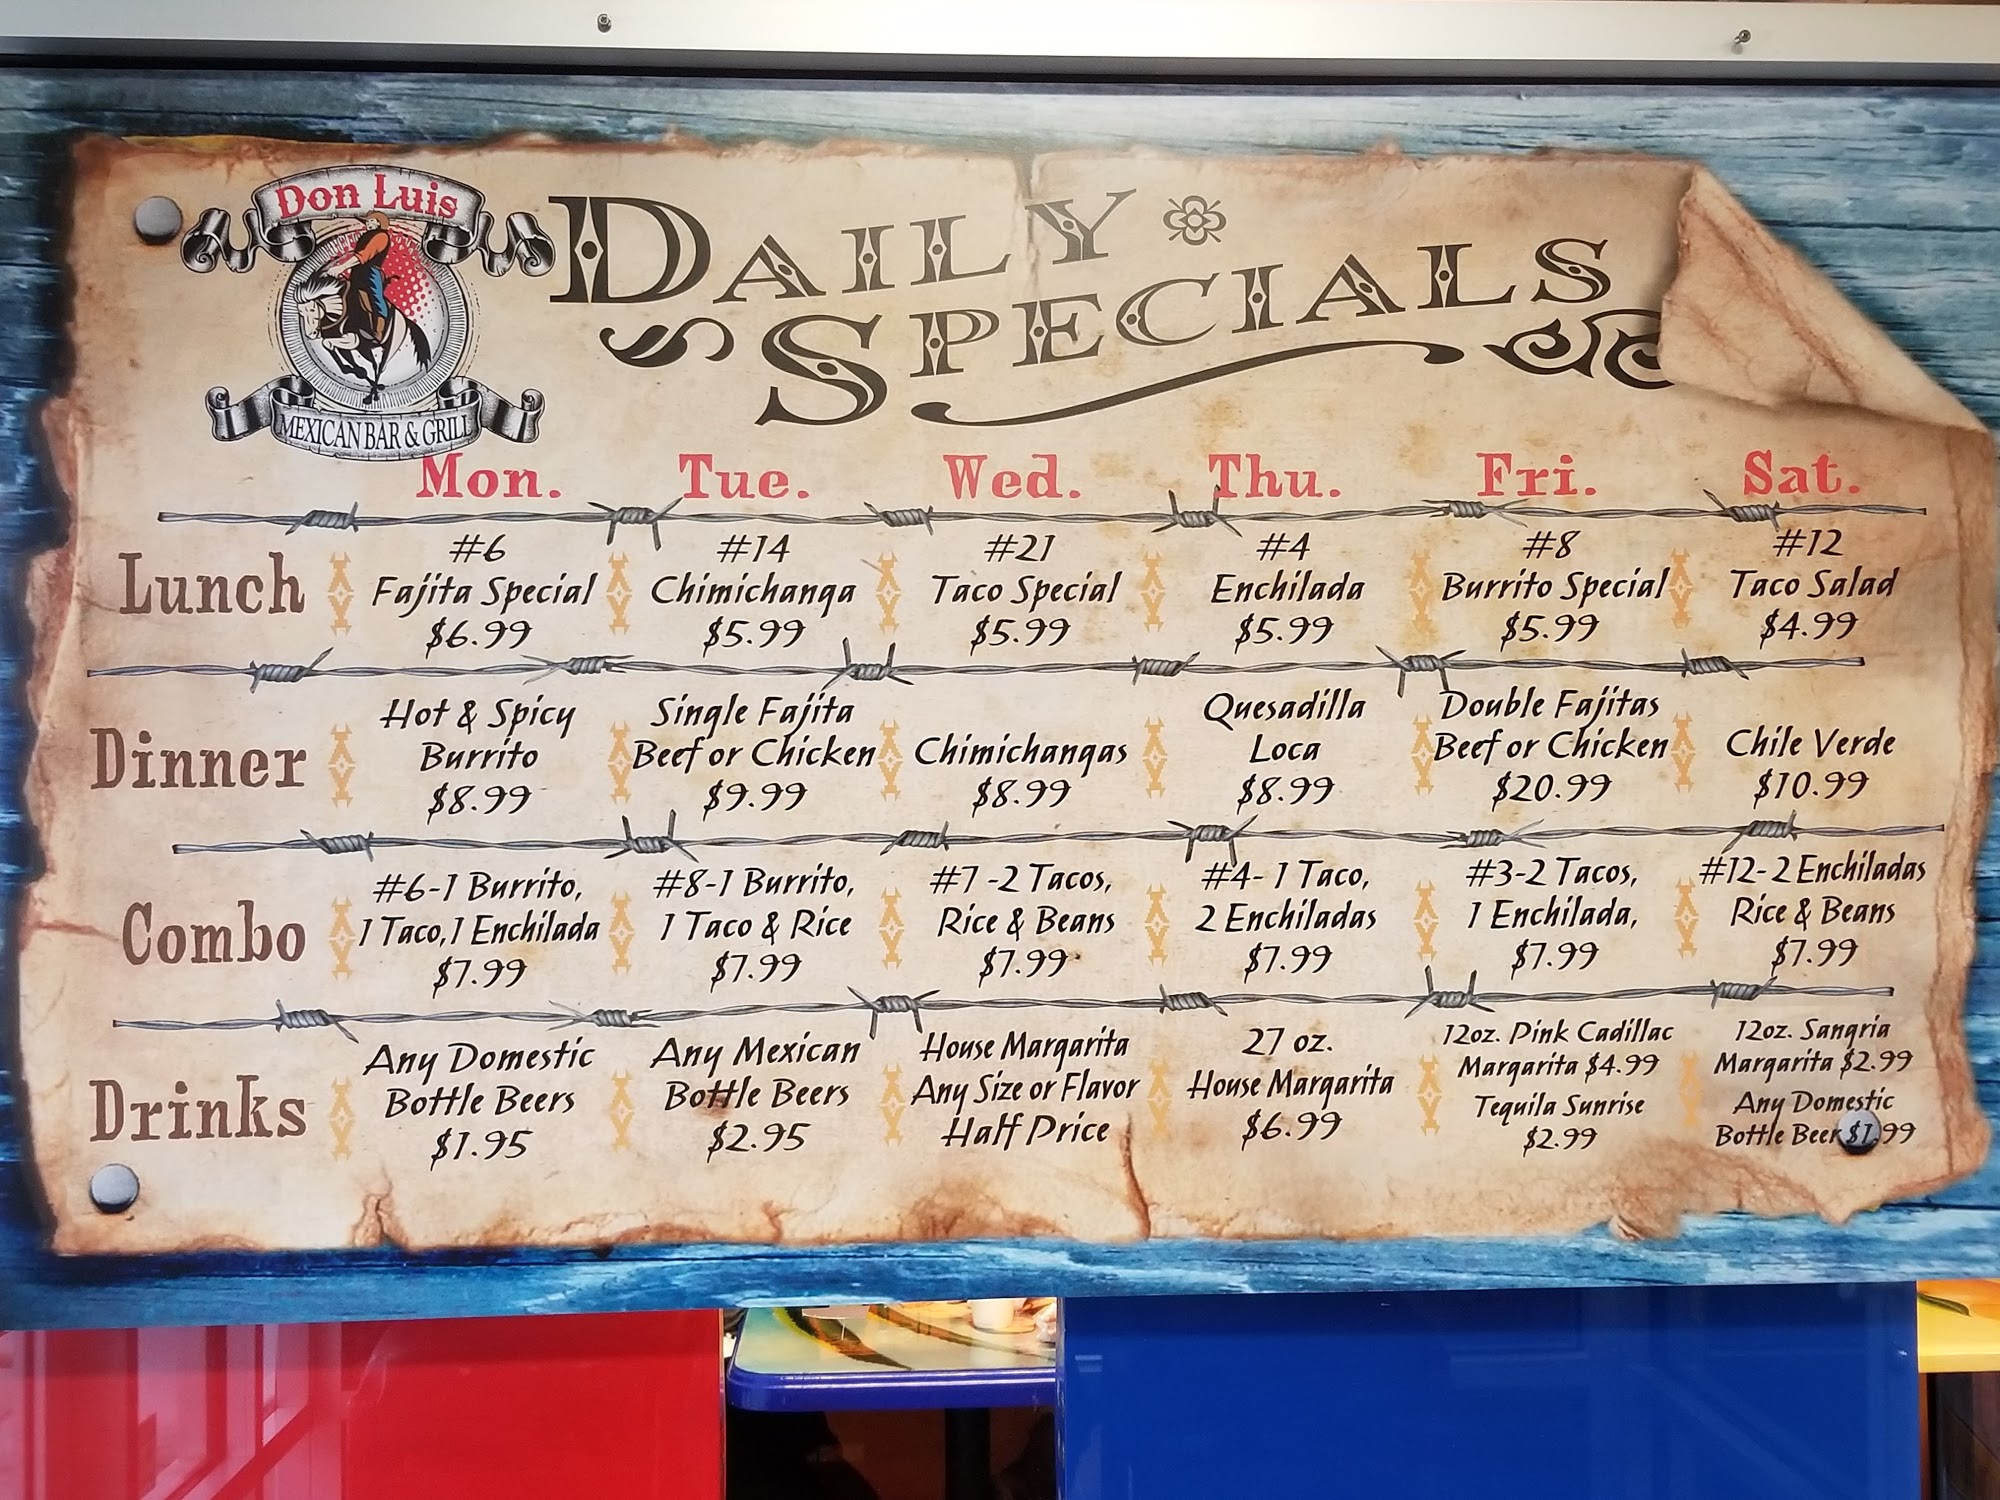 Don Luis
MEXICAN BAR & GRILL
DAILY
SPECIALS
Mon. Tue. Wed. Thu. Fri. Sat.
Lunch
#6
Fajita Special
$6.99
#14
Chimichanga
$5.99
#21
Taco Special
$5.99
#4
Enchilada
$5.99
#8
Burrito Special
$5.99
#12
Taco Salad
$4.99
Dinner
Hot & Spicy
Burrito
$8.99
Single Fajita
Beef or Chicken
$9.99
Chimichangas
$8.99
Quesadilla
Loca
$8.99
Double Fajitas
Beef or Chicken
$20.99
Chile Verde
$10.99
Combo
#6-1 Burrito,
1 Taco,1 Enchilada
$7.99
#8-1 Burrito,
1 Taco & Rice
$7.99
#7 -2 Tacos,
Rice & Beans
$7.99
#4- 1 Taco,
2 Enchiladas
$7.99
#3-2 Tacos,
1 Enchilada,
$7.99
#12-2 Enchiladas
Rice & Beans
$7.99
Drinks
Any Domestic
Bottle Beers
$1.95
Any Mexican
Bottle Beers
$2.95
House Margarita
Any Size or Flavor
Half Price
27 oz.
House Margarita
$6.99
12oz. Pink Cadillac
Margarita $4.99
Tequila Sunrise
$2.99
12oz. Sangria
Margarita $2.99
Any Domestic
Bottle Beer $1.99